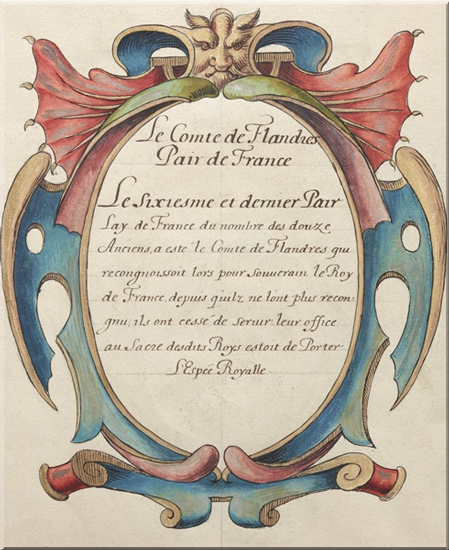 Le Comte de Flandres
Pair de France
Le Sixiesme et dernier Pair
Lay de France du nombre des douze
Anciens, a esté le Comte de Flandres qui
recongnoissoit lors pour Souverain le Roy
de France, depuis quilz ne lont plus recon
gnu, ils ont cessé de servir leur office
au Sacre desdits Roys estoit de Porter
L'Espée Royalle.